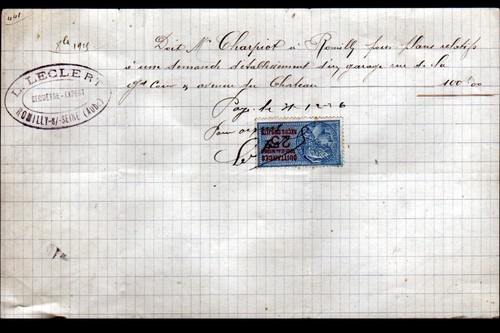 441
L. LECLERT
GÉOMÈTRE-EXPERT
ROMILLY-s/-SEINE (AUBE)
Doit Mr Charpiot à Romilly pour plans relatifs
à une demande d'établissement d'un garage rue de la
Gde Cour & avenue du Château 100.00
Payé le
Pour acquit
QUITTANCES
25